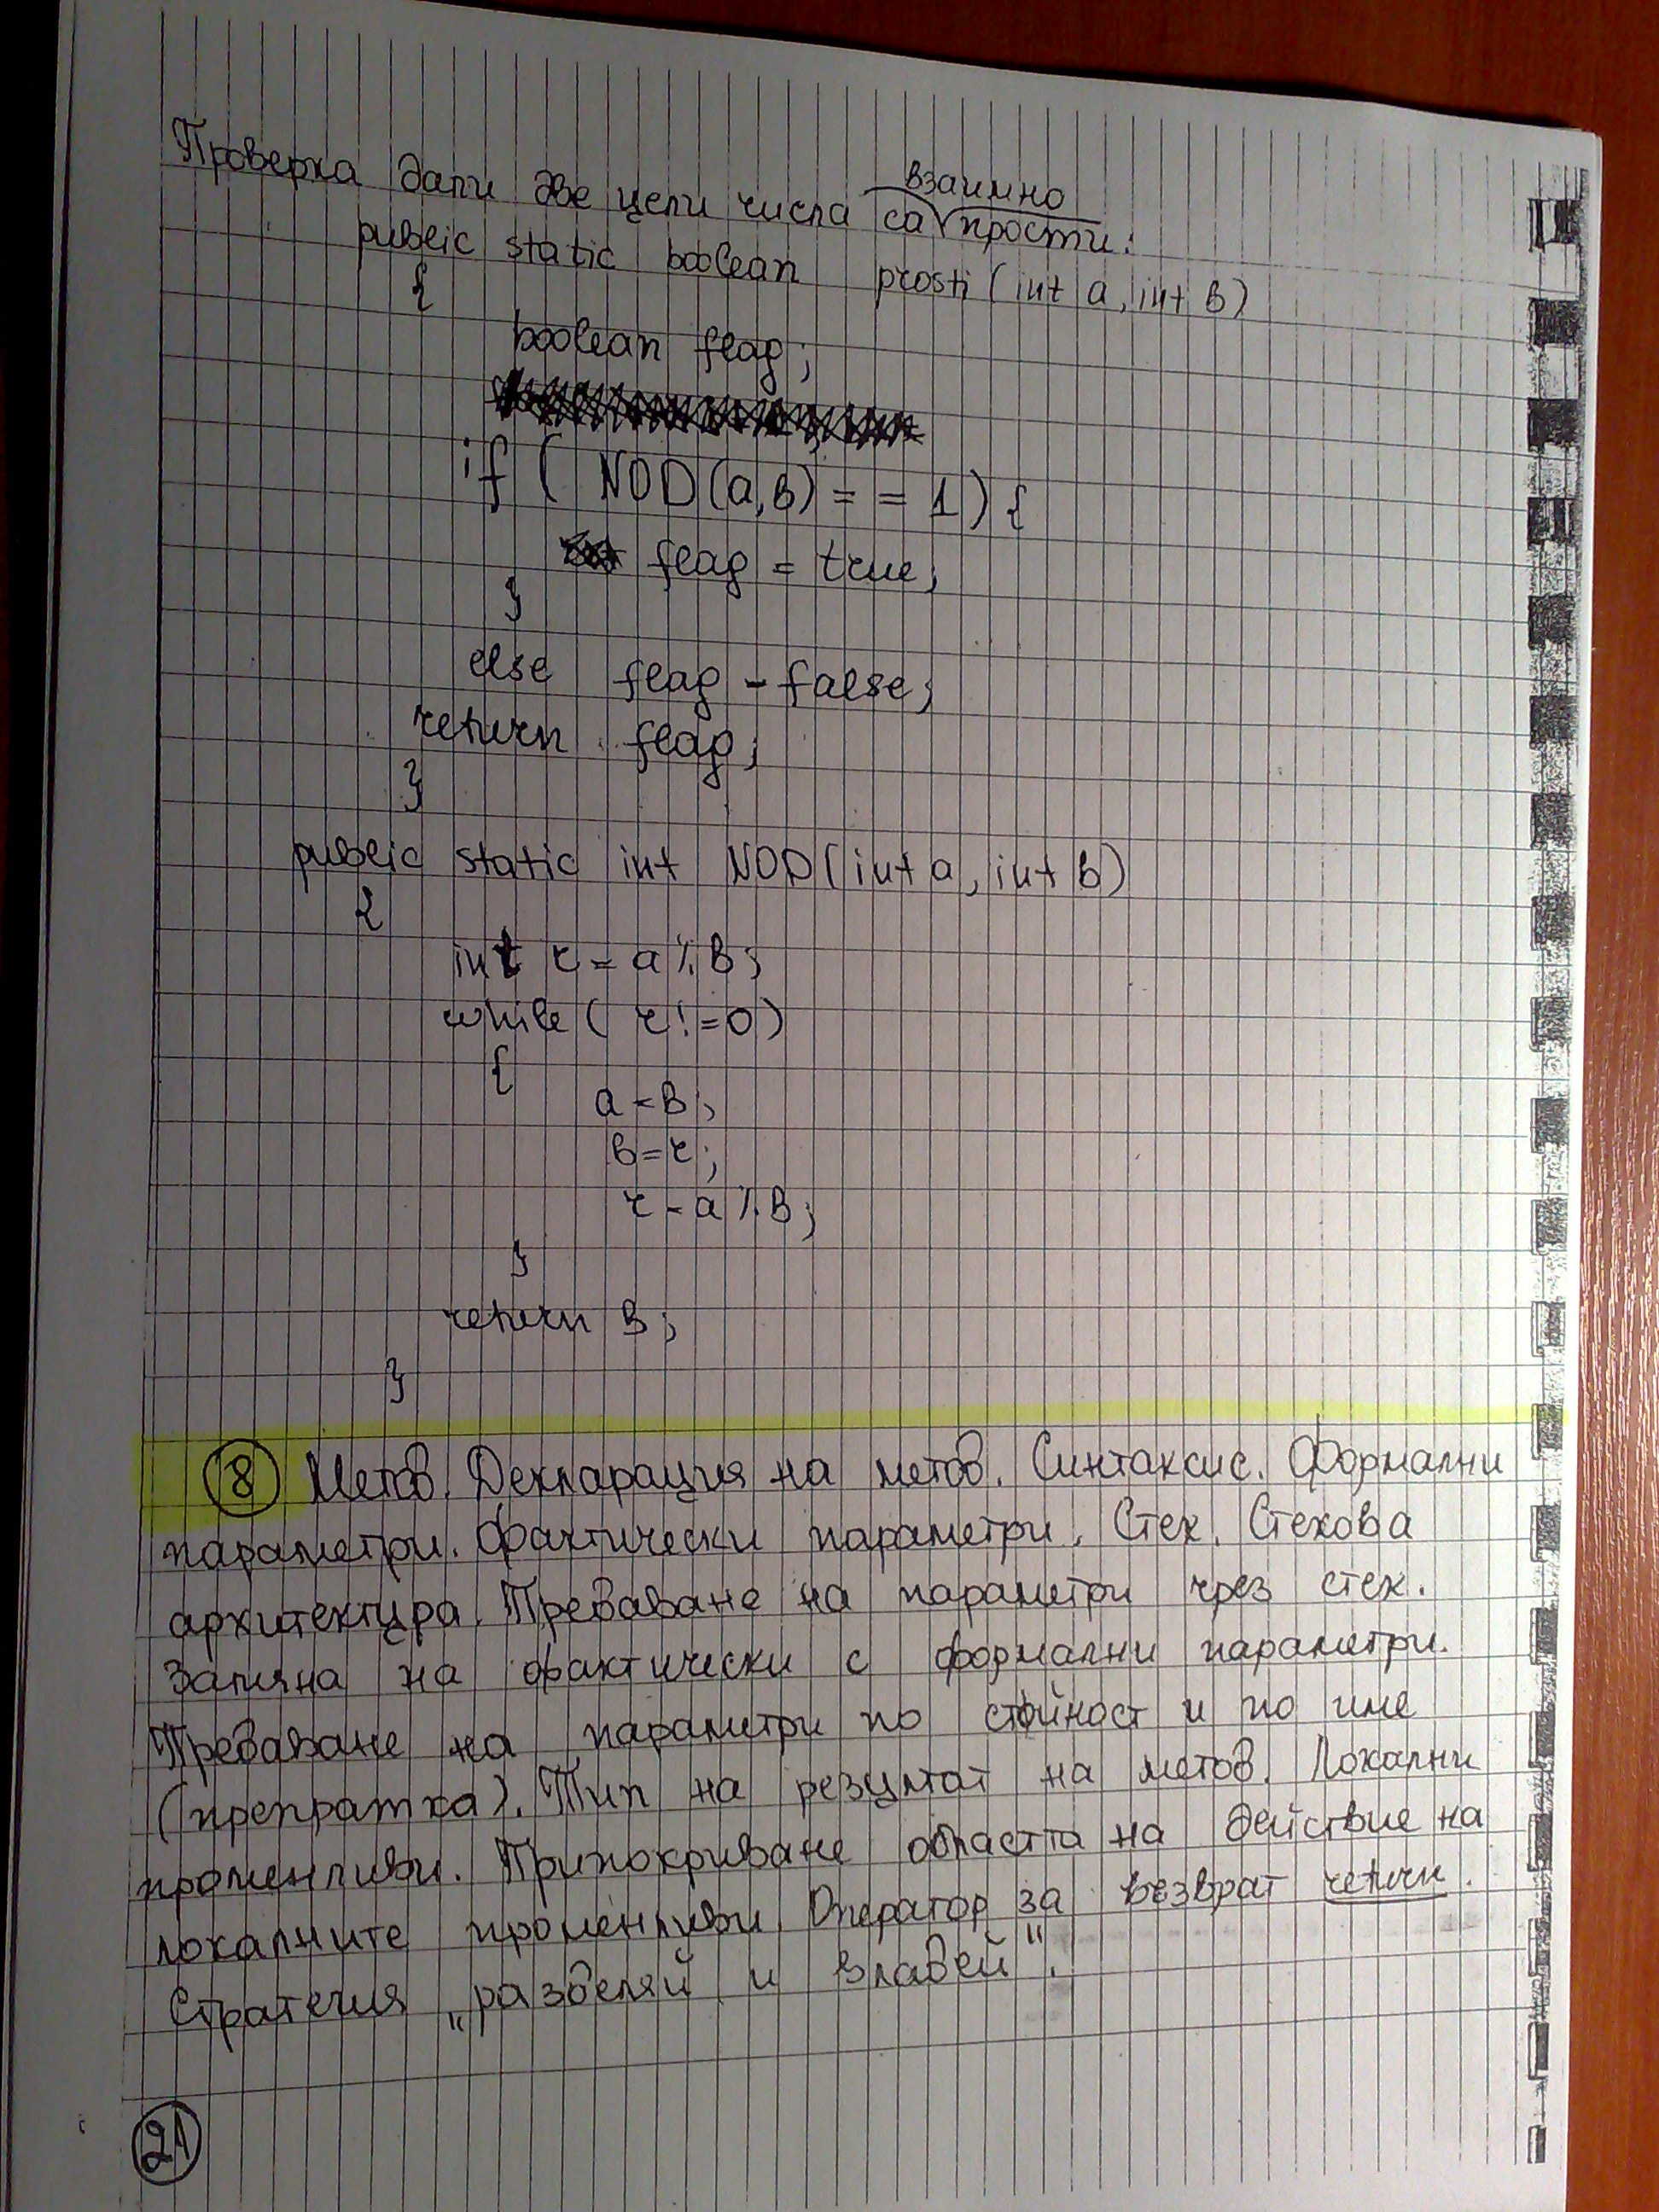 Проверка дали две цели числа са взаимно прости:
public static boolean prosti (int a, int b)
{
boolean flag;
if ( NOD(a,b) == 1) {
flag = true;
}
else flag = false;
return flag;
}
public static int NOD(int a, int b)
{
int r = a % b;
while ( r != 0)
{
a = b;
b = r;
r = a % b;
}
return b;
}
8 Метод. Декларация на метод. Синтаксис. Формални
параметри. Фактически параметри. Стек. Стекова
архитектура. Предаване на параметри чрез стек.
Замяна на фактически с формални параметри.
Предаване на параметри по стойност и по име
(препратка). Тип на резултат на метод. Локални
променливи. Припокриване областта на действие на
локалните променливи. Оператор за възврат return.
Стратегия „разделяй и владей".
21